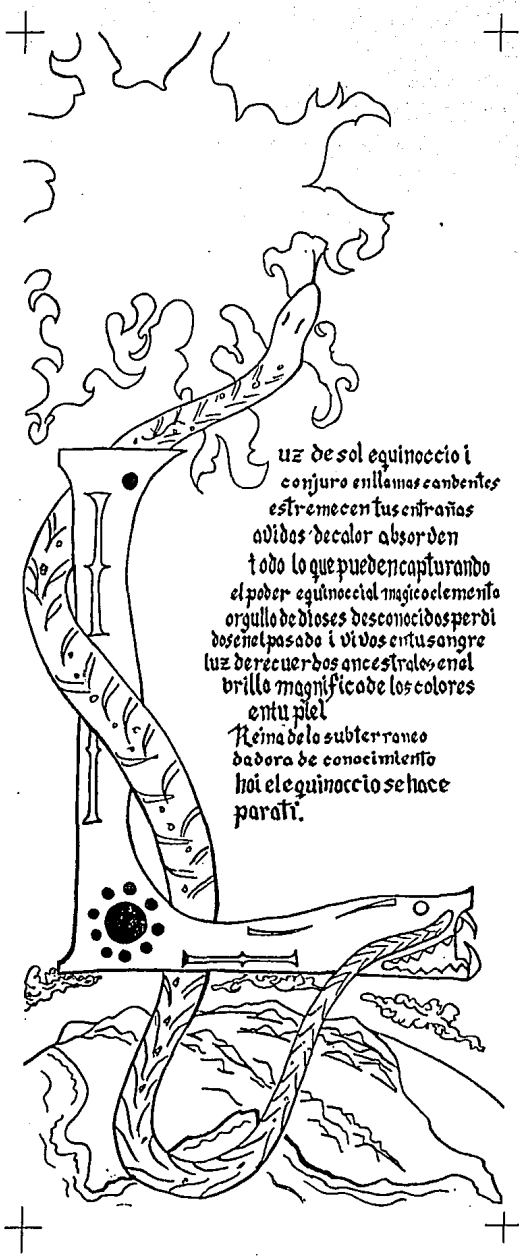 Luz de sol equinoccio i
conjuro enllamas candentes
estremecen tus entrañas
avidas decalor absorven
todo lo que puedencapturando
el poder equinoccial magicoelemento
orgullo de dioses desconocidos perdi
dosenelpasado i vivos entusangre
luz derecuerdos ancestrales enel
brillo magnificode los colores
entu piel
Reina dela subterraneo
dadora de conocimiento
hoi elequinoccio sehace
parati.